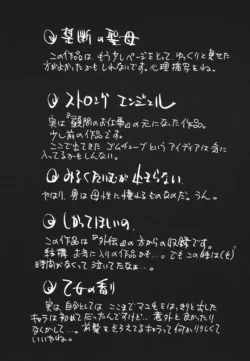 禁断の聖母
この作品は、もう少しページをとって、ゆっくりと見せた
方がよかったかもしれないです。心理描写をね。
ストロングエンジェル
実は『顧問のお仕事』の元になった作品。
少し前の作品です。
ここで出てきたゴムチューブというアイディアは気に
入ってるかもしんない。
みるくたいむが止まらない
やはり、男は母性に憧れるものなのだ。うん。
しかってほしいの
この作品は『外伝』の方からの収録です。
結構、お気に入りの作品かも…。でもこの時は(も)
時間がなくって泣いてたなぁ…。
乙女の香り
実は自分としては、ここまでマユ毛をはっきりと出した
キャラは初めてだったんですけど…意外と良かったり
なんかして…。前髪をそろえてるキャラって何かりりしくて
いいやね。